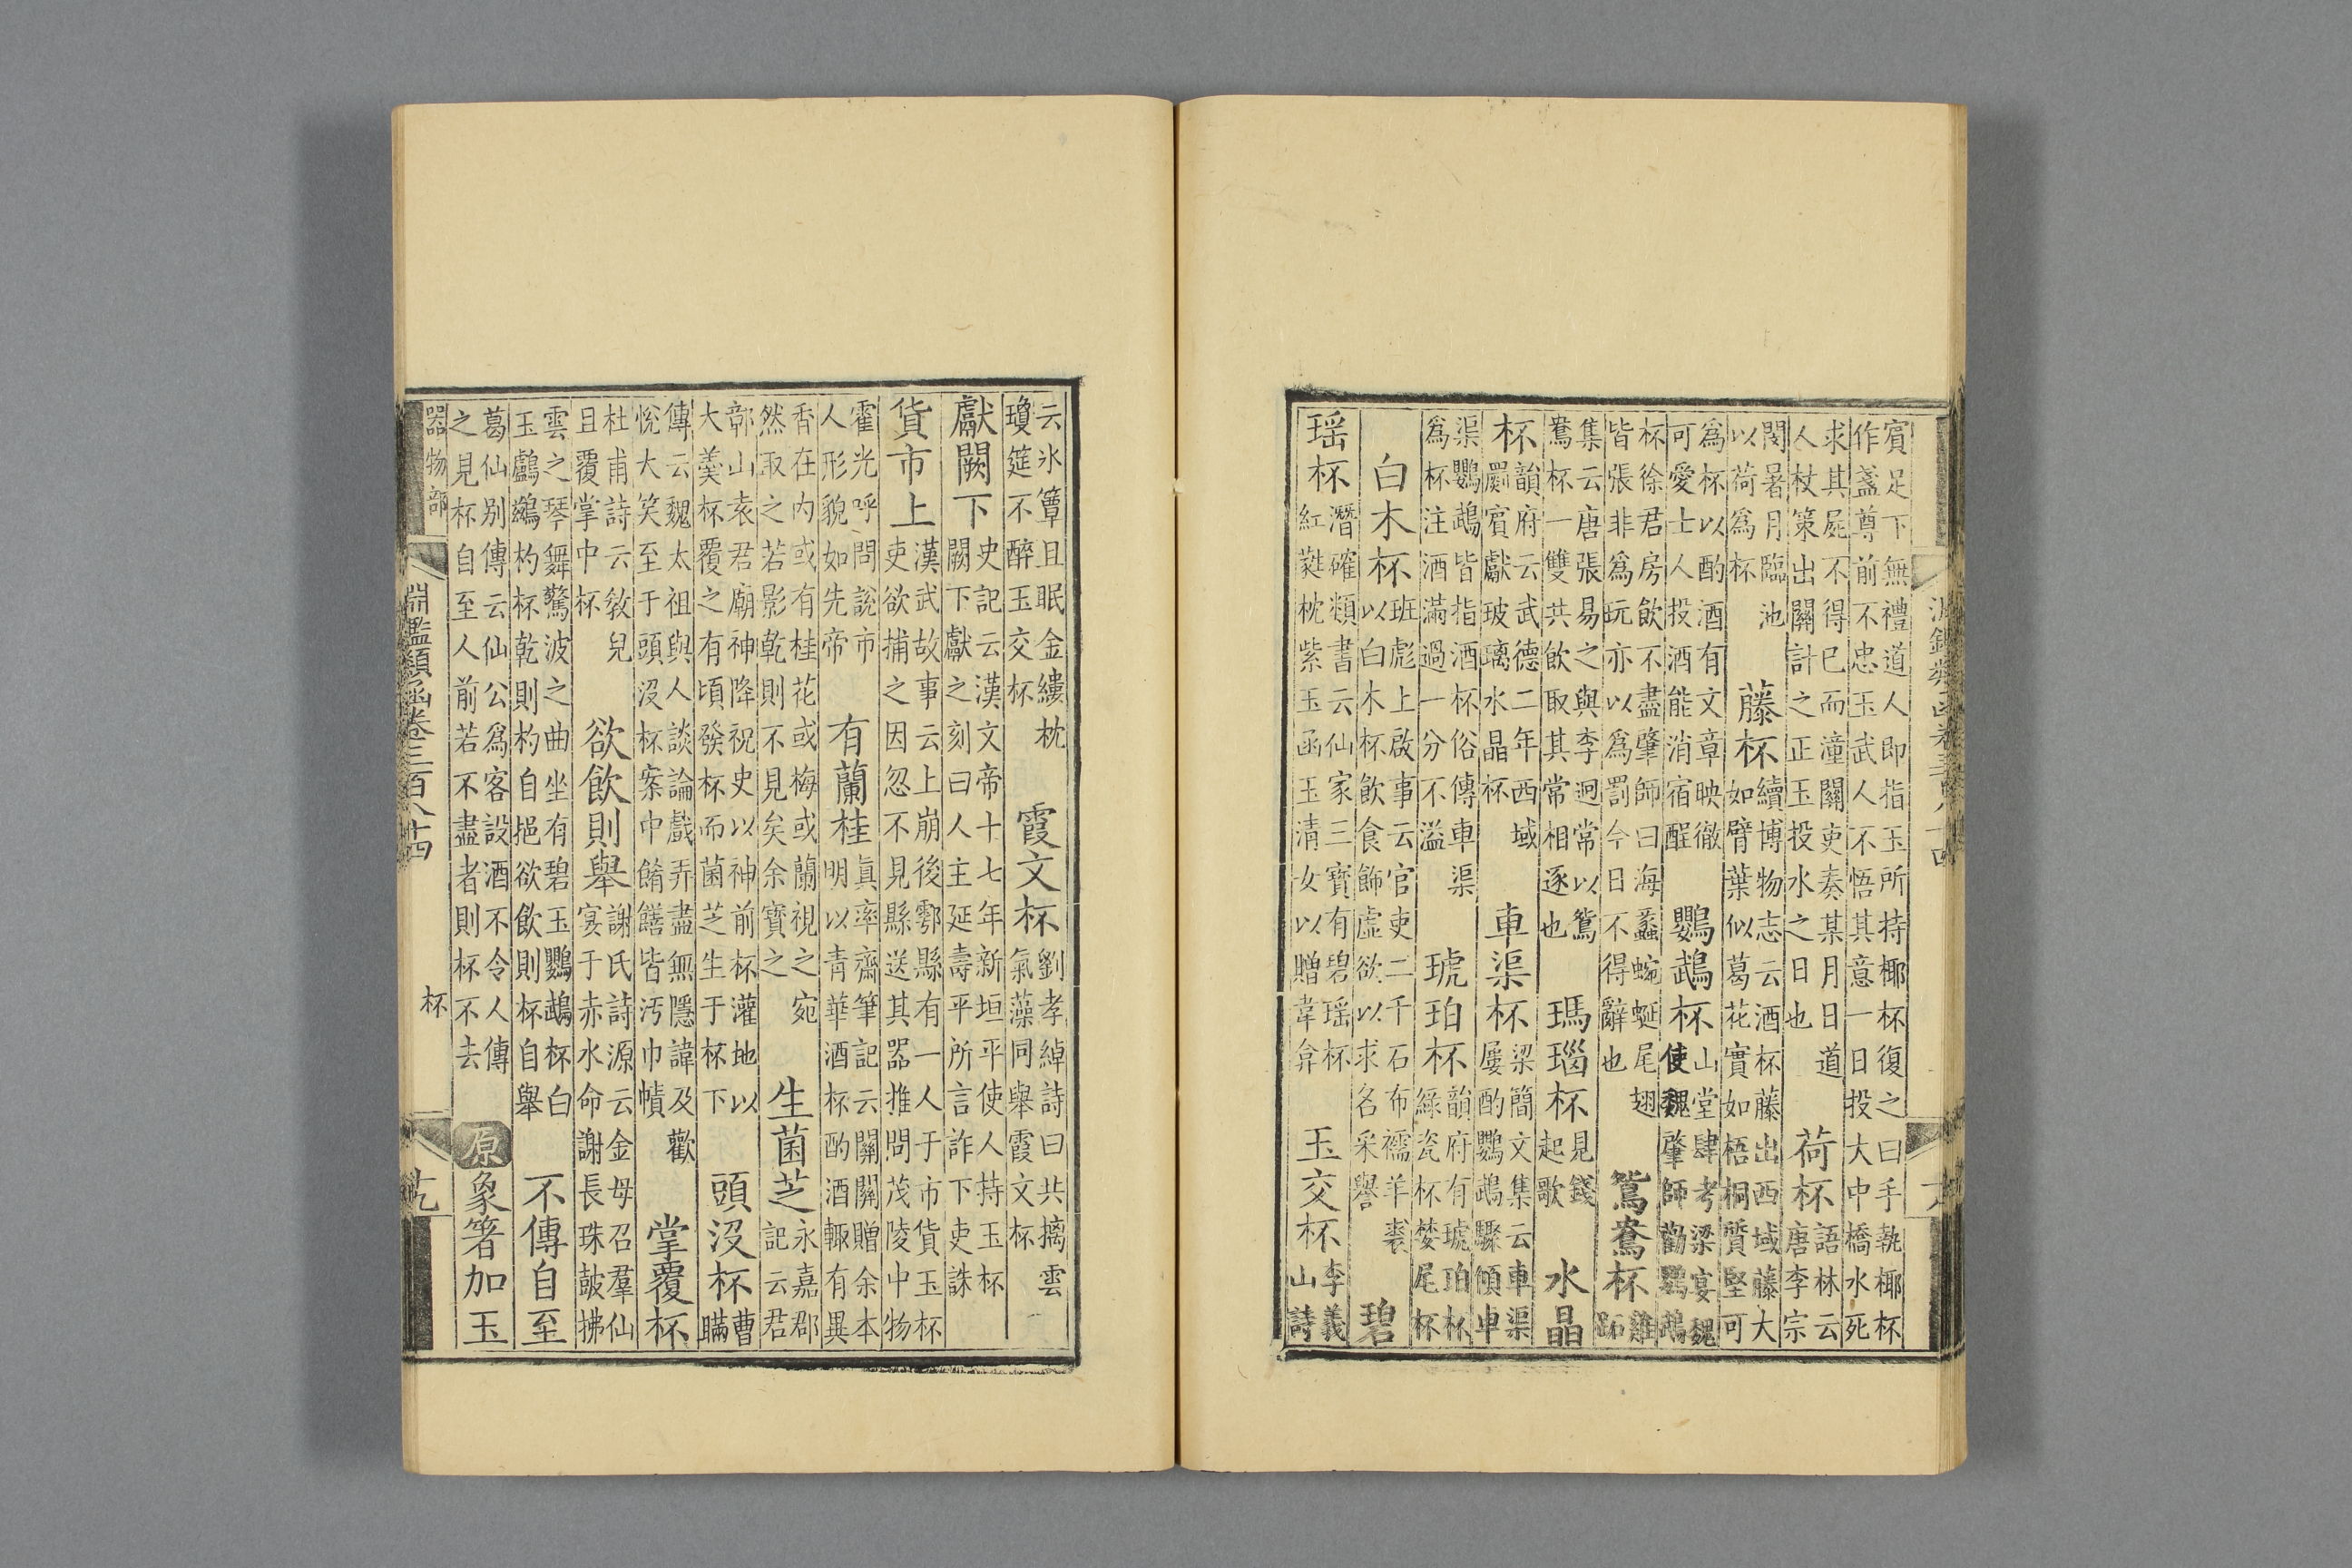 賓足下無禮道人即指玉所持椰杯復之曰手執椰杯
作盞尊前不忠玉武人不悟其意一日投大中橋水死
求其屍不得巳而潼關吏奏某月日道
人杖策出關計之正玉投水之日也
荷杯
語林云
唐李宗
閔暑月臨池
以荷爲杯
藤杯
續博物志云酒杯藤出西域藤大
如臂葉似葛花實如梧桐質堅可
爲杯以酌酒有文章映徹
可愛士人投酒能消宿酲
鸚鵡杯
山堂肆考梁宴魏
使魏肇師勸鸚鵡
杯徐君房飲不盡肇師曰海蠡蜿蜒尾翅
皆張非爲玩亦以爲罰今日不得辭也
鴛鴦杯
雞
跖
集云唐張易之與李迥常以鴛
鴦杯一雙共飲取其常相逐也
瑪瑙杯
見錢
起歌
水晶
杯
韻府云武德二年西域
罽賓獻玻璃水晶杯
車渠杯
梁簡文集云車渠
屢酌鸚鵡驟傾車
渠鸚鵡皆指酒杯俗傳車渠
爲杯注酒滿過一分不溢
琥珀杯
韻府有琥珀杯
綠瓷杯婪尾杯
白木杯
班彪上啟事云官吏二千石布襦羊裘
以白木杯飲食飾虛欲以求名采譽
碧
瑶杯
潛確類書云仙家三寶有碧瑶杯
紅蕤枕紫玉函玉清女以贈韋弇
玉交杯
李義
山詩
云氷簟且眠金縷枕
瓊筵不醉玉交杯
霞文杯
劉孝綽詩曰共摛雲
氣藻同舉霞文杯
獻闕下
史記云漢文帝十七年新垣平使人持玉杯
闕下獻之刻曰人主延壽平所言詐下吏誅
貨市上
漢武故事云上崩後鄠縣有一人于市貨玉杯
吏欲捕之因忽不見縣送其器推問茂陵中物
霍光呼問說市
人形貌如先帝
有蘭桂
真率齋筆記云關關贈余本
明以青華酒杯酌酒輙有異
香在内或有桂花或梅或蘭視之宛
然取之若影乾則不見矣余寶之
生菌芝
永嘉郡
記云君
郭山袁君廟神降祝史以神前杯灌地以
大羹杯覆之有頃發杯而菌芝生于杯下
頭没杯
曹
瞞
傳云魏太祖與人談論戲弄盡無隱諱及歡
悅大笑至于頭没杯案中餚饍皆汚巾幘
掌覆杯
杜甫詩云敎兒
且覆掌中杯
欲飲則舉
謝氏詩源云金母召羣仙
宴于赤水命謝長珠鼓拂
雲之琴舞驚波之曲坐有碧玉鸚鵡杯白
玉鸕鷀杓杯乾則杓自挹欲飲則杯自舉
不傳自至
葛仙別傳云仙公爲客設酒不令人傳
之見杯自至人前若不盡者則杯不去
原
象箸加玉
器物部
淵鑑類函卷三百八十四
杯